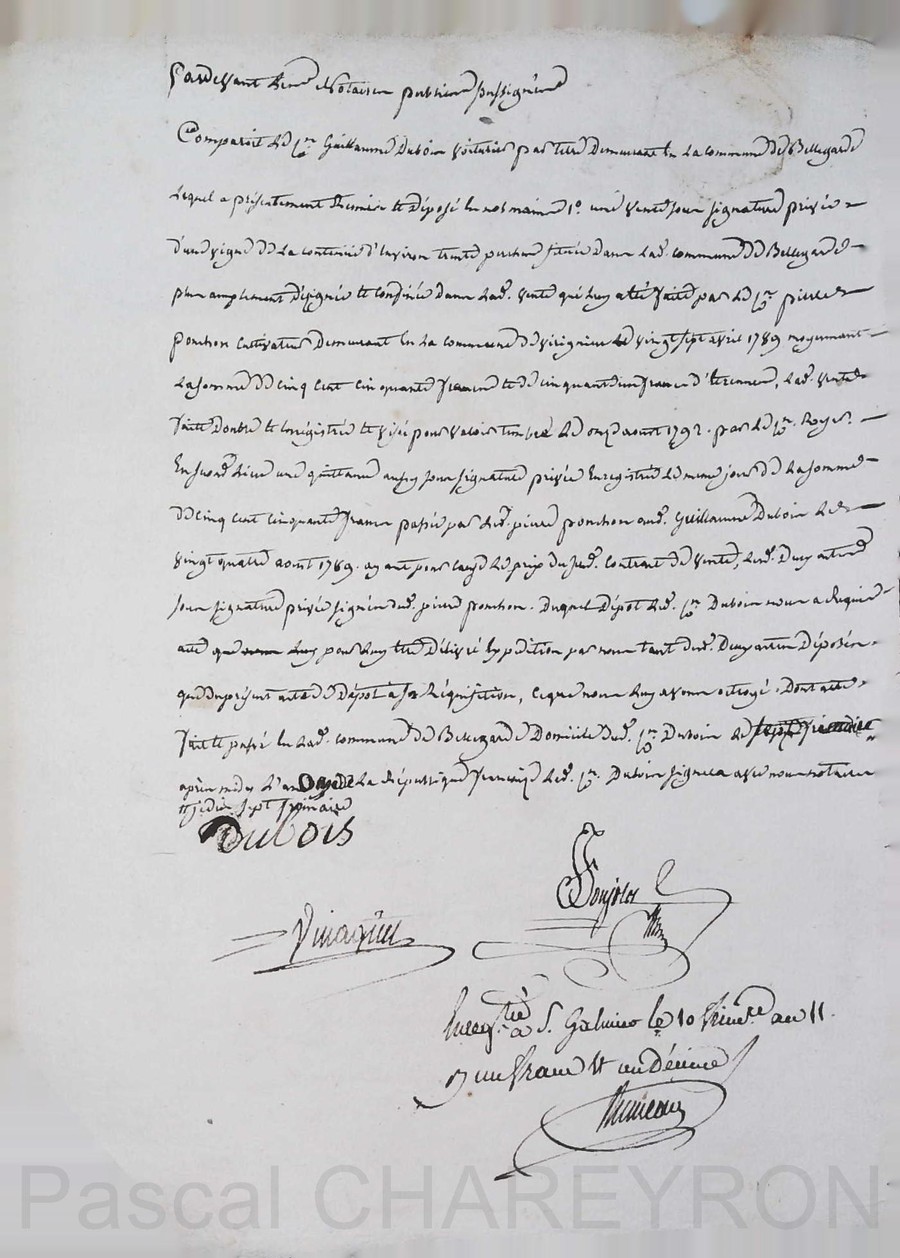 Pardevant les Notaires publics soussignés
Comparoit le Cn Guillaume Dubois voiturier par terre demeurant en la commune de Bellegarde
lequel a présentement remis et déposé en nos mains 1o. une vente sous signature privée
d'une vigne de la contenüe d'environ trente perches située dans lad. commune de Bellegarde
plus amplement désignée et confinée dans lad. vente qui luy a été faite par le Cn pierre
ponchon cultivateur demeurant en la commune de virignieu le vingt sept avril 1789 moyennant
la somme de cinq cent cinquante francs et de cinquante un francs d'étrennes, lad. vente
faite double et enrégistrée et visée pour valoir timbre le onze aoust 1792. par le Cn. Royer.
En second lieu une quittance aussy sous signature privée Enregistrée le meme jour de la somme
de cinq cent cinquante francs passée par led. pierre ponchon aud. Guillaume Dubois le
vingt quatre aoust 1789. ayant pour cause le prix du sud. contrat de vente, lesd. deux actes
sous signature privée signés dud. pierre ponchon. Duquel dépot led. Cn Dubois nous a requis
acte que pour luy etre délivré expédition par nous tant desd. deux actes déposés
que du présent acte de dépot a sa réquisition, ce que nous luy avons octroyé. Dont acte
fait et passé en lad. commune de Bellegarde domicile dud. Cn Dubois le
après midy l'an onze de la république française led. Cn. Dubois signera avec nous notaires
sept frimaire
Dubois
Enregistré a S. Galmier le 10 frimre an 11.
un franc et un décime
Pascal CHAREYRON